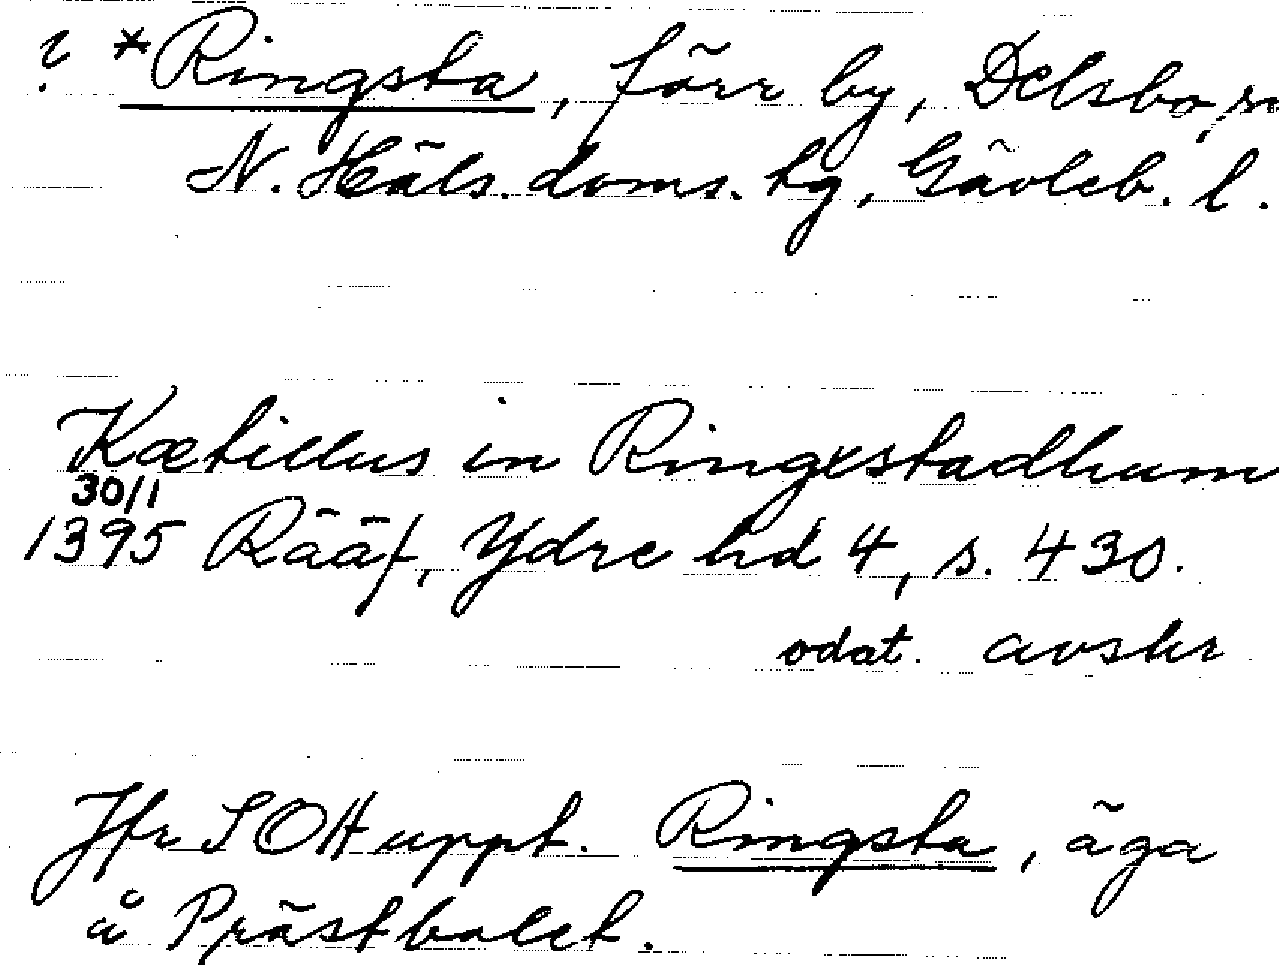 ? *Ringsta, förr by, Delsbo, sn
N. Häls. doms. hg, Gävleb. l.
Kætillus in Ringxstadhum
30/1
1395 Rääf, Ydre hd 4, s. 430.
odat. avskr
Jfr SOH uppt. Ringsta, äga
å Prästbolet.